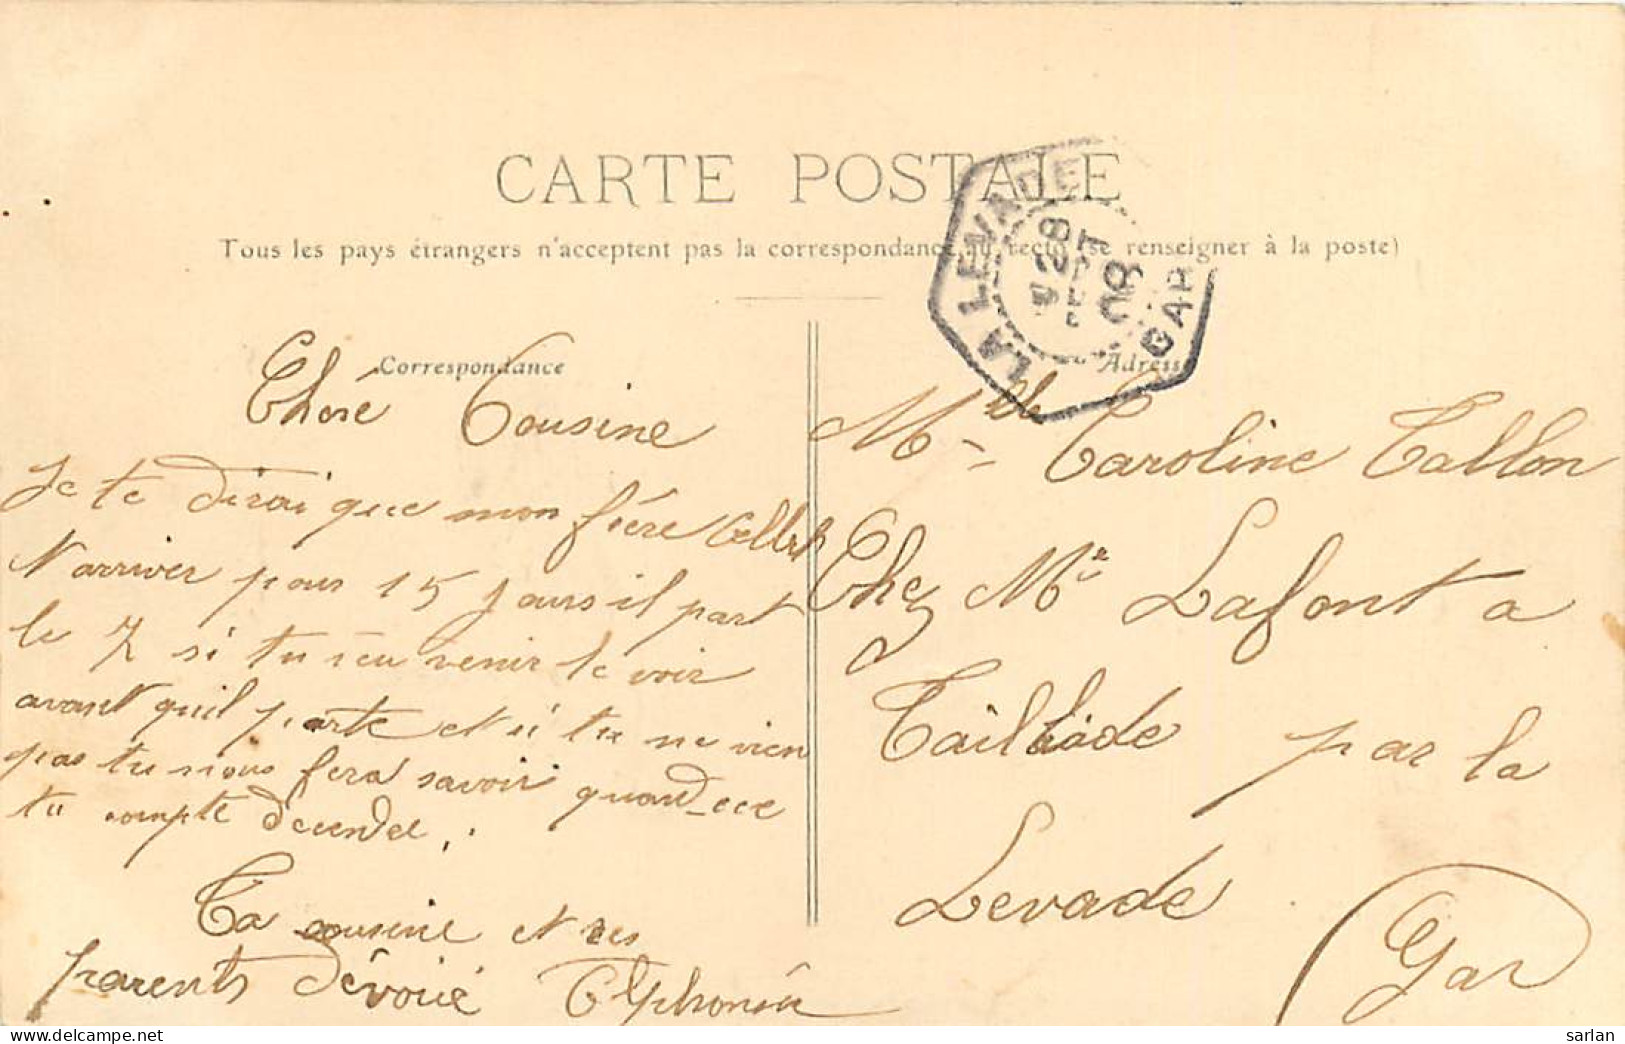 CARTE POSTALE
Tous les pays étrangers n'acceptent pas la correspondance au recto (se renseigner à la poste)
Correspondance
Adresse
LA LEVADE
28
08
GARD
Cheré Cousine
Je te dirai que mon frère
Narriver pour 15 jours il part
le 7 si tu veu venir le voir
avant quil parte et si tu ne vien
pas tu nous fera savoir quand_ece
tu compte decendre.
Ta cousine et tes
parents dévoué
Mlle Caroline Tallon
Chez Mr Lafont a
Taillade par la
Levade
Gard
sarlan